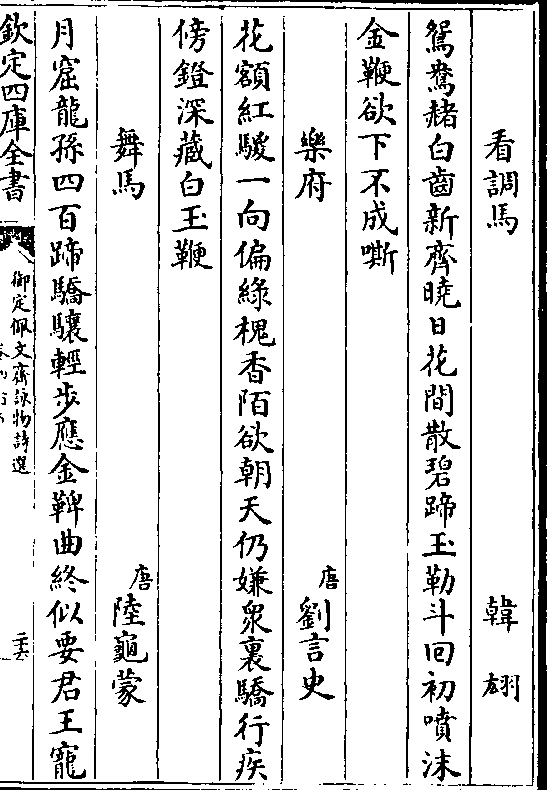 看調馬 韓翃
鴛鴦赭白齒新齊曉日花間散碧蹄玉勒斗回初噴沫
金鞭欲下不成嘶
樂府 唐 劉言史
花額紅騣一向偏綠槐香陌欲朝天仍嫌衆裏驕行疾
傍鐙深藏白玉鞭
舞馬 唐 陸龜蒙
月窟龍孫四百蹄驕驤輕步應金鞞曲終似要君王寵
欽定四庫全書
御定佩文齋詠物詩選
二十六